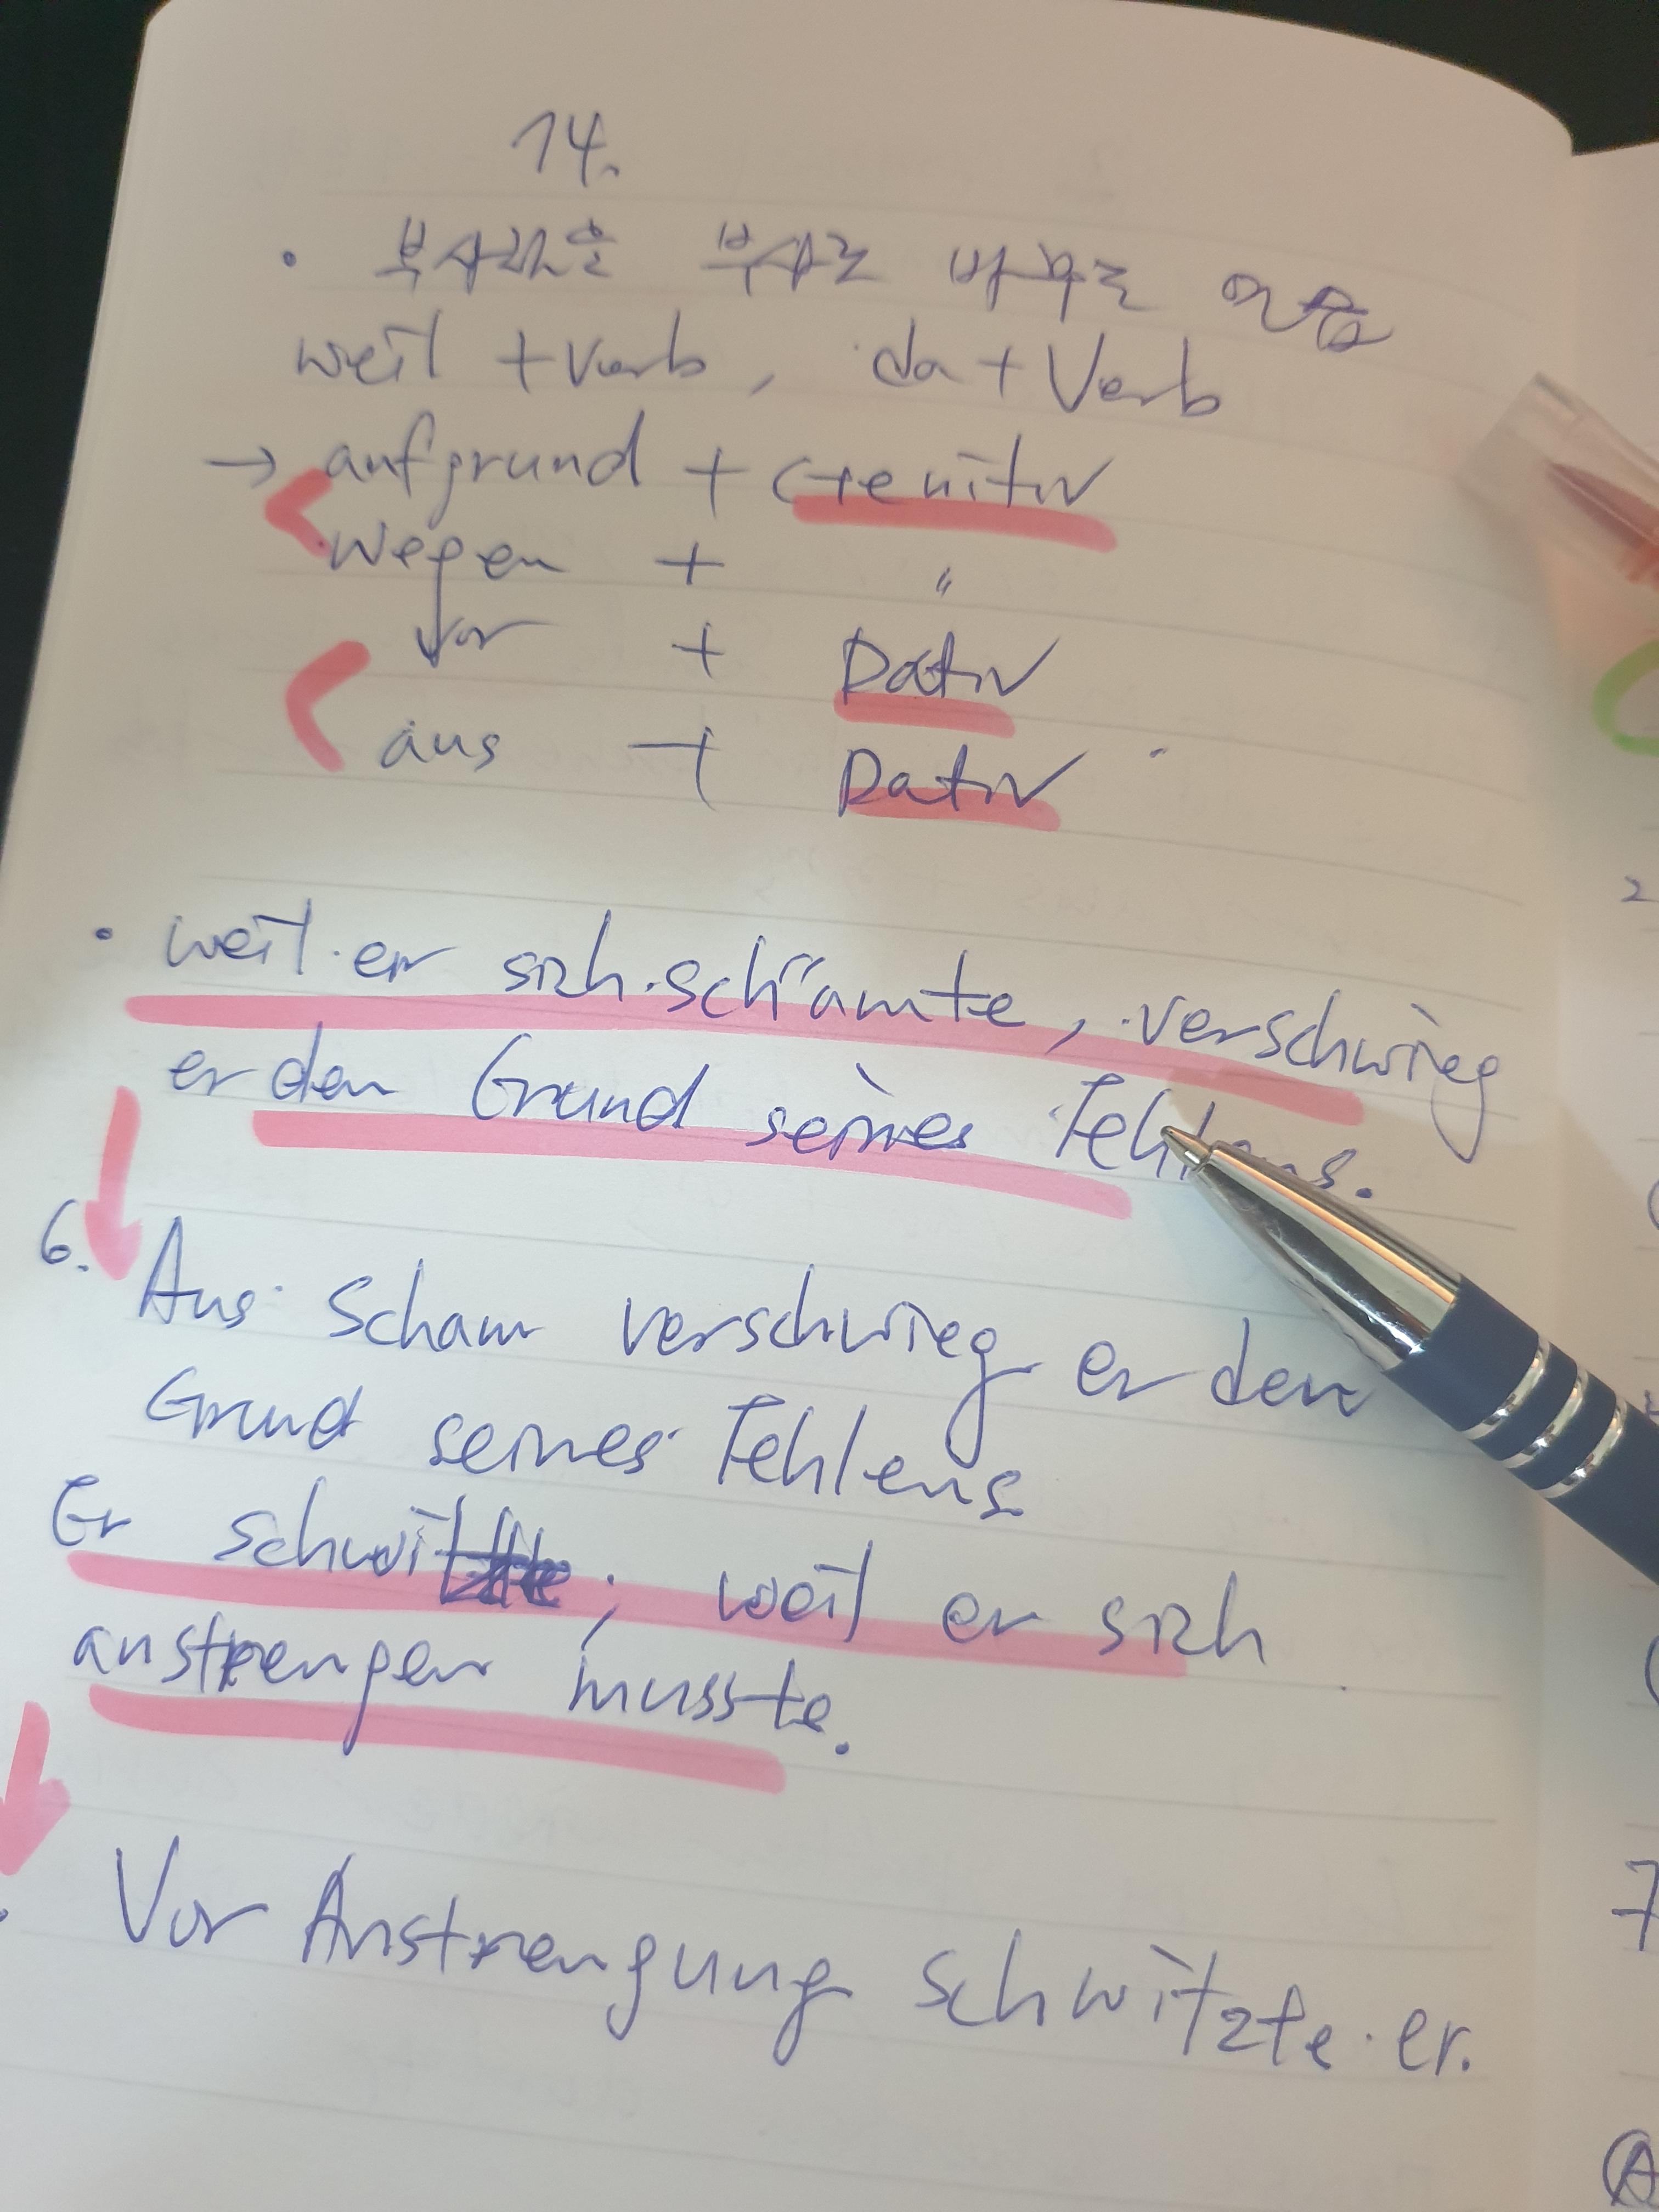 14.
• 부사관을 부사로 바꾸는 연습
weil + Verb, da + Verb
→ aufgrund + Genitiv
wegen + "
vor + Dativ
aus + Dativ
• weil er sich schämte, verschwieg
er den Grund seines Fehlens.
6. Aus Scham verschwieg er den
Grund seines Fehlens
Er schwitzte, weil er sich
anstrengen musste.
Vor Anstrengung schwitzte er.
2
7
A